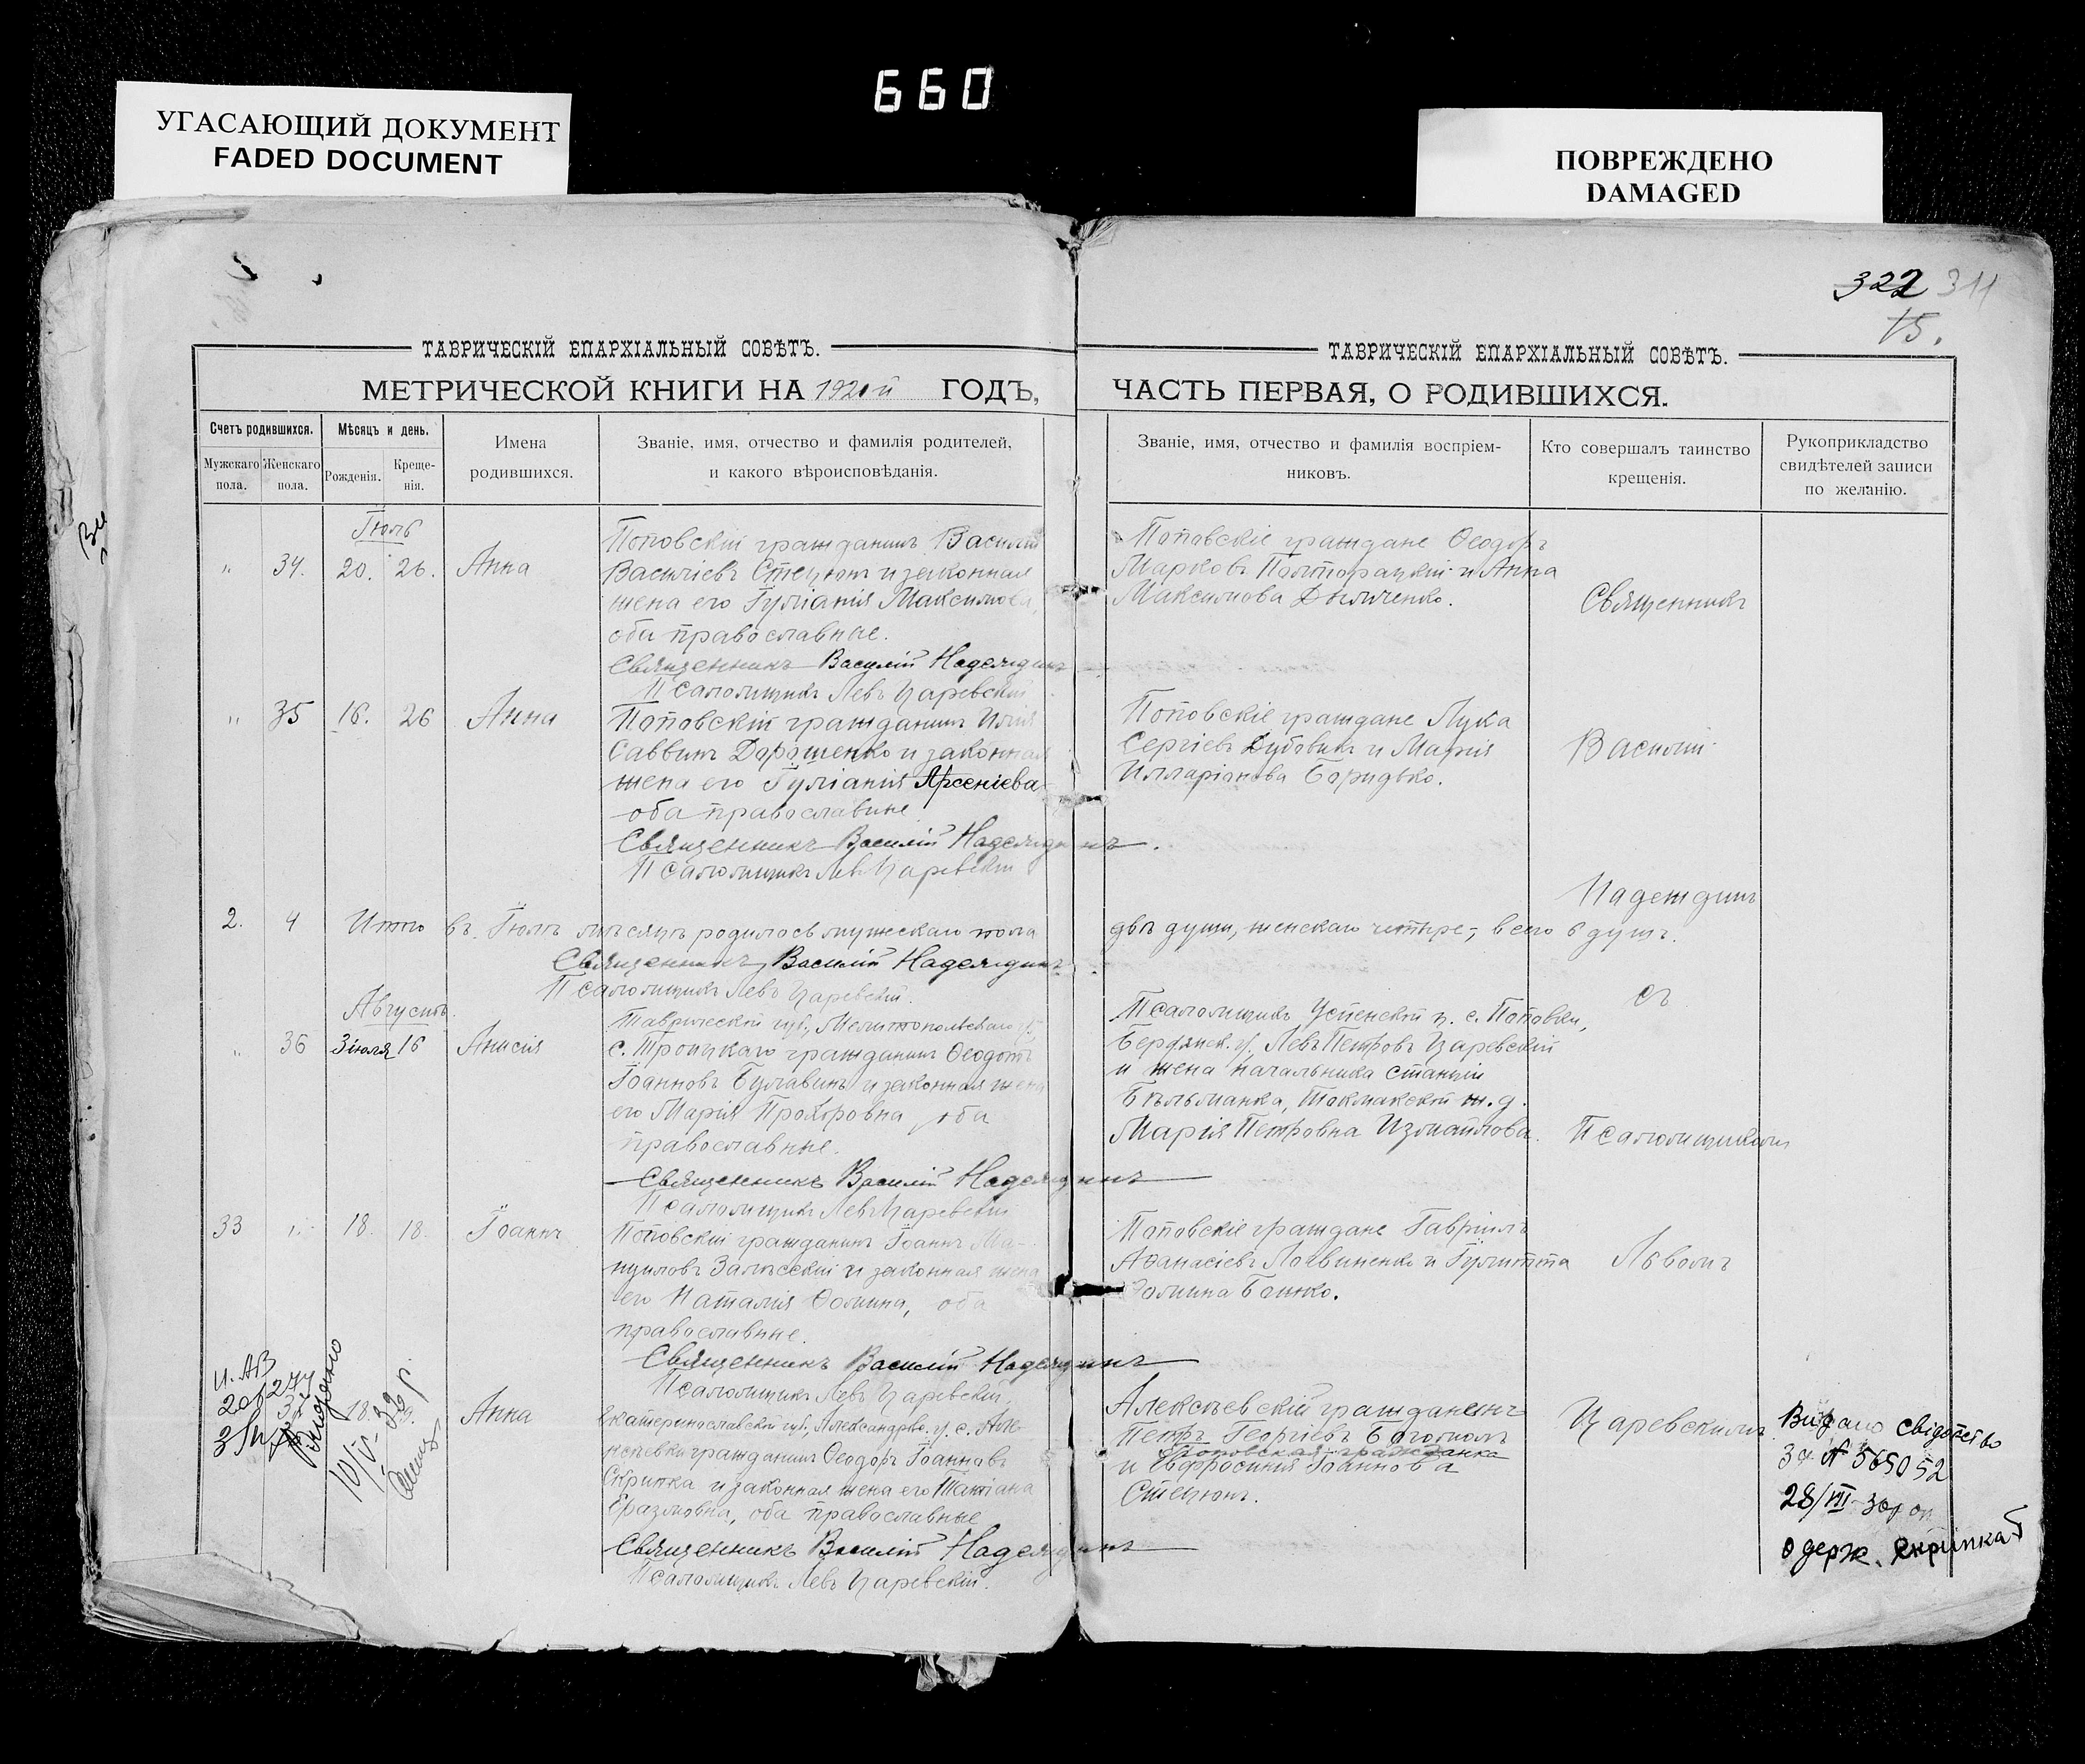 660
УГАСАЮЩИЙ ДОКУМЕНТ
FADED DOCUMENT
ПОВРЕЖДЕНО
DAMAGED
322 311
15.
ТАВРИЧЕСКІЙ ЕПАРХІАЛЬНЫЙ СОВѢТЪ.
МЕТРИЧЕСКОЙ КНИГИ НА 1920й ГОДЪ,
Счетъ родившихся.
Мужскаго пола.
Женскаго пола.
Мѣсяцъ и день.
Рожденія.
Креще-
нія.
Имена
родившихся.
Званіе, имя, отчество и фамилія родителей,
и какого вѣроисповѣданія.
ТАВРИЧЕСКІЙ ЕПАРХІАЛЬНЫЙ СОВѢТЪ.
ЧАСТЬ ПЕРВАЯ, О РОДИВШИХСЯ.
Званіе, имя, отчество и фамилія воспріем-
никовъ.
Кто совершалъ таинство
крещенія.
Рукоприкладство
свидѣтелей записи
по желанію.
Іюль
" 34. 20. 26. Анна
Поповскій гражданинъ Василій
Васильевъ Стецюнъ и законная
жена его Іуліанія Максимова,
оба православные.
Священникъ Василій Надеждинъ
Псаломщикъ Левъ Царевскій
Поповскіе граждане Ѳеодоръ
Марковъ Полторацкій и Анна
Максимова Дьяченко.
Священникъ
" 35 16. 26 Анна
Поповскій гражданинъ Илія
Саввинъ Дорошенко и законная
жена его Іуліанія Арсеніева
оба православные
Священникъ Василій Надеждинъ.
Псаломщикъ Левъ Царевскій
Поповскіе граждане Лука
Сергіевъ Дубовикъ и Марія
Илларіонова Боридько.
Василій
Надеждинъ
2. 4 Итого въ Іюлѣ мѣсяцѣ родилось мужскаго пола двѣ души, женскаго четыре, всего 6 душъ.
Священникъ Василій Надеждинъ.
Псаломщикъ Левъ Царевскій.
съ
Августъ.
" 36 3 іюля 16 Анисія
Таврической губ., Мелитопольскаго у.
с. Троицкаго гражданинъ Ѳеодотъ
Іоанновъ Булавинъ и законная жена
его Марія Прохоровна оба
православные.
Священникъ Василій Надеждинъ
Псаломщикъ Левъ Царевскій
Псаломщикъ Успенской ц. с. Поповки,
Бердянск. у., Левъ Петровъ Царевскій
и жена начальника станціи
Бѣльманка, Токмакской ж. д.
Марія Петровна Измайлова.
Псаломщикомъ
33 " 18. 18. Іоаннъ
Поповскій гражданинъ Іоаннъ Ма-
нуиловъ Залѣсскій и законная жена
его Наталія Ѳомина, оба
православные.
Священникъ Василій Надеждинъ
Псаломщикъ Левъ Царевскій
Поповскіе граждане Гавріилъ
Аѳанасіевъ Логвиненко и Іулитта
Ѳомина Бошко.
Львомъ
37 18. Анна
Видано
10/V-32 р.
Екатеринославской губ., Александров. у. с. Але-
ксѣевки гражданинъ Ѳеодоръ Іоанновъ
Скрипка и законная жена его Татіана
Еразмовна, оба православные
Священникъ Василій Надеждинъ
Псаломщикъ Левъ Царевскій.
Алексѣевскій гражданинъ
Петръ Георгіевъ Богомолъ
Поповская гражданка
и Евфросинія Іоаннова
Стецюнъ.
Царевскимъ
Видано свідоцтво
за № 565052
28/VII-30р
одерж. Скрипка